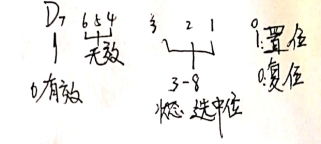 D7 6 5 4 3 2 1 0
0有效 无效 3-8 1:置位
状态 选中位 0:复位